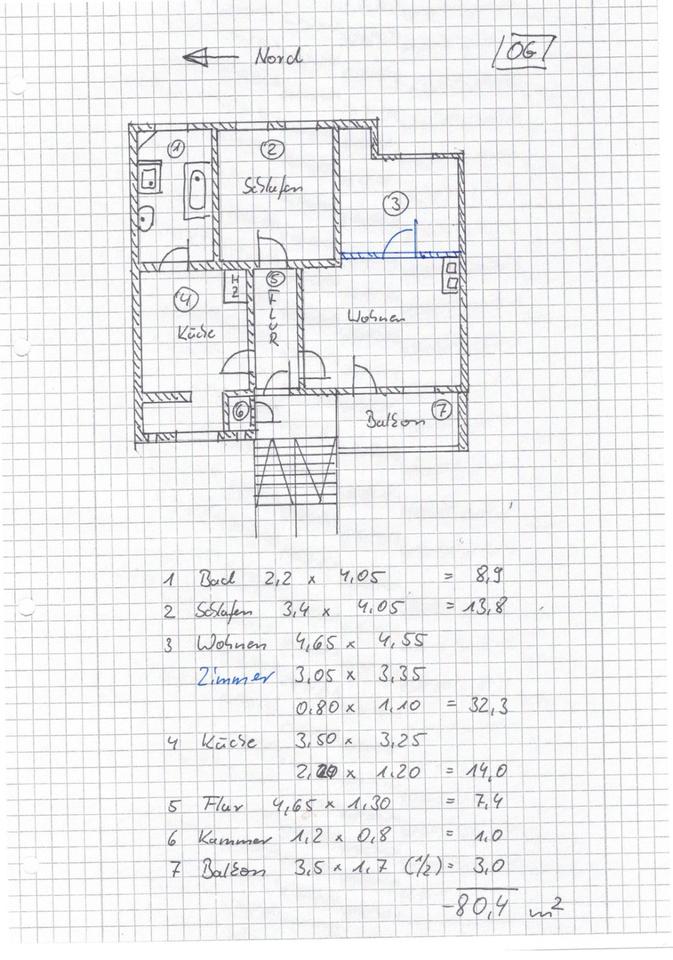 ← Nord
OG
1
2
Schlafen
3
4
Küche
HZ
5
FLUR
Wohnen
6
Balkon 7
1 Bad 2,2 x 4,05 = 8,9
2 Schlafen 3,4 x 4,05 = 13,8
3 Wohnen 4,65 x 4,55
Zimmer 3,05 x 3,35
0,80 x 1,10 = 32,3
4 Küche 3,50 x 3,25
x 1,20 = 14,0
5 Flur 4,65 x 1,30 = 7,4
6 Kammer 1,2 x 0,8 = 1,0
7 Balkon 3,5 x 1,7 (1/2) = 3,0
~80,4 m²